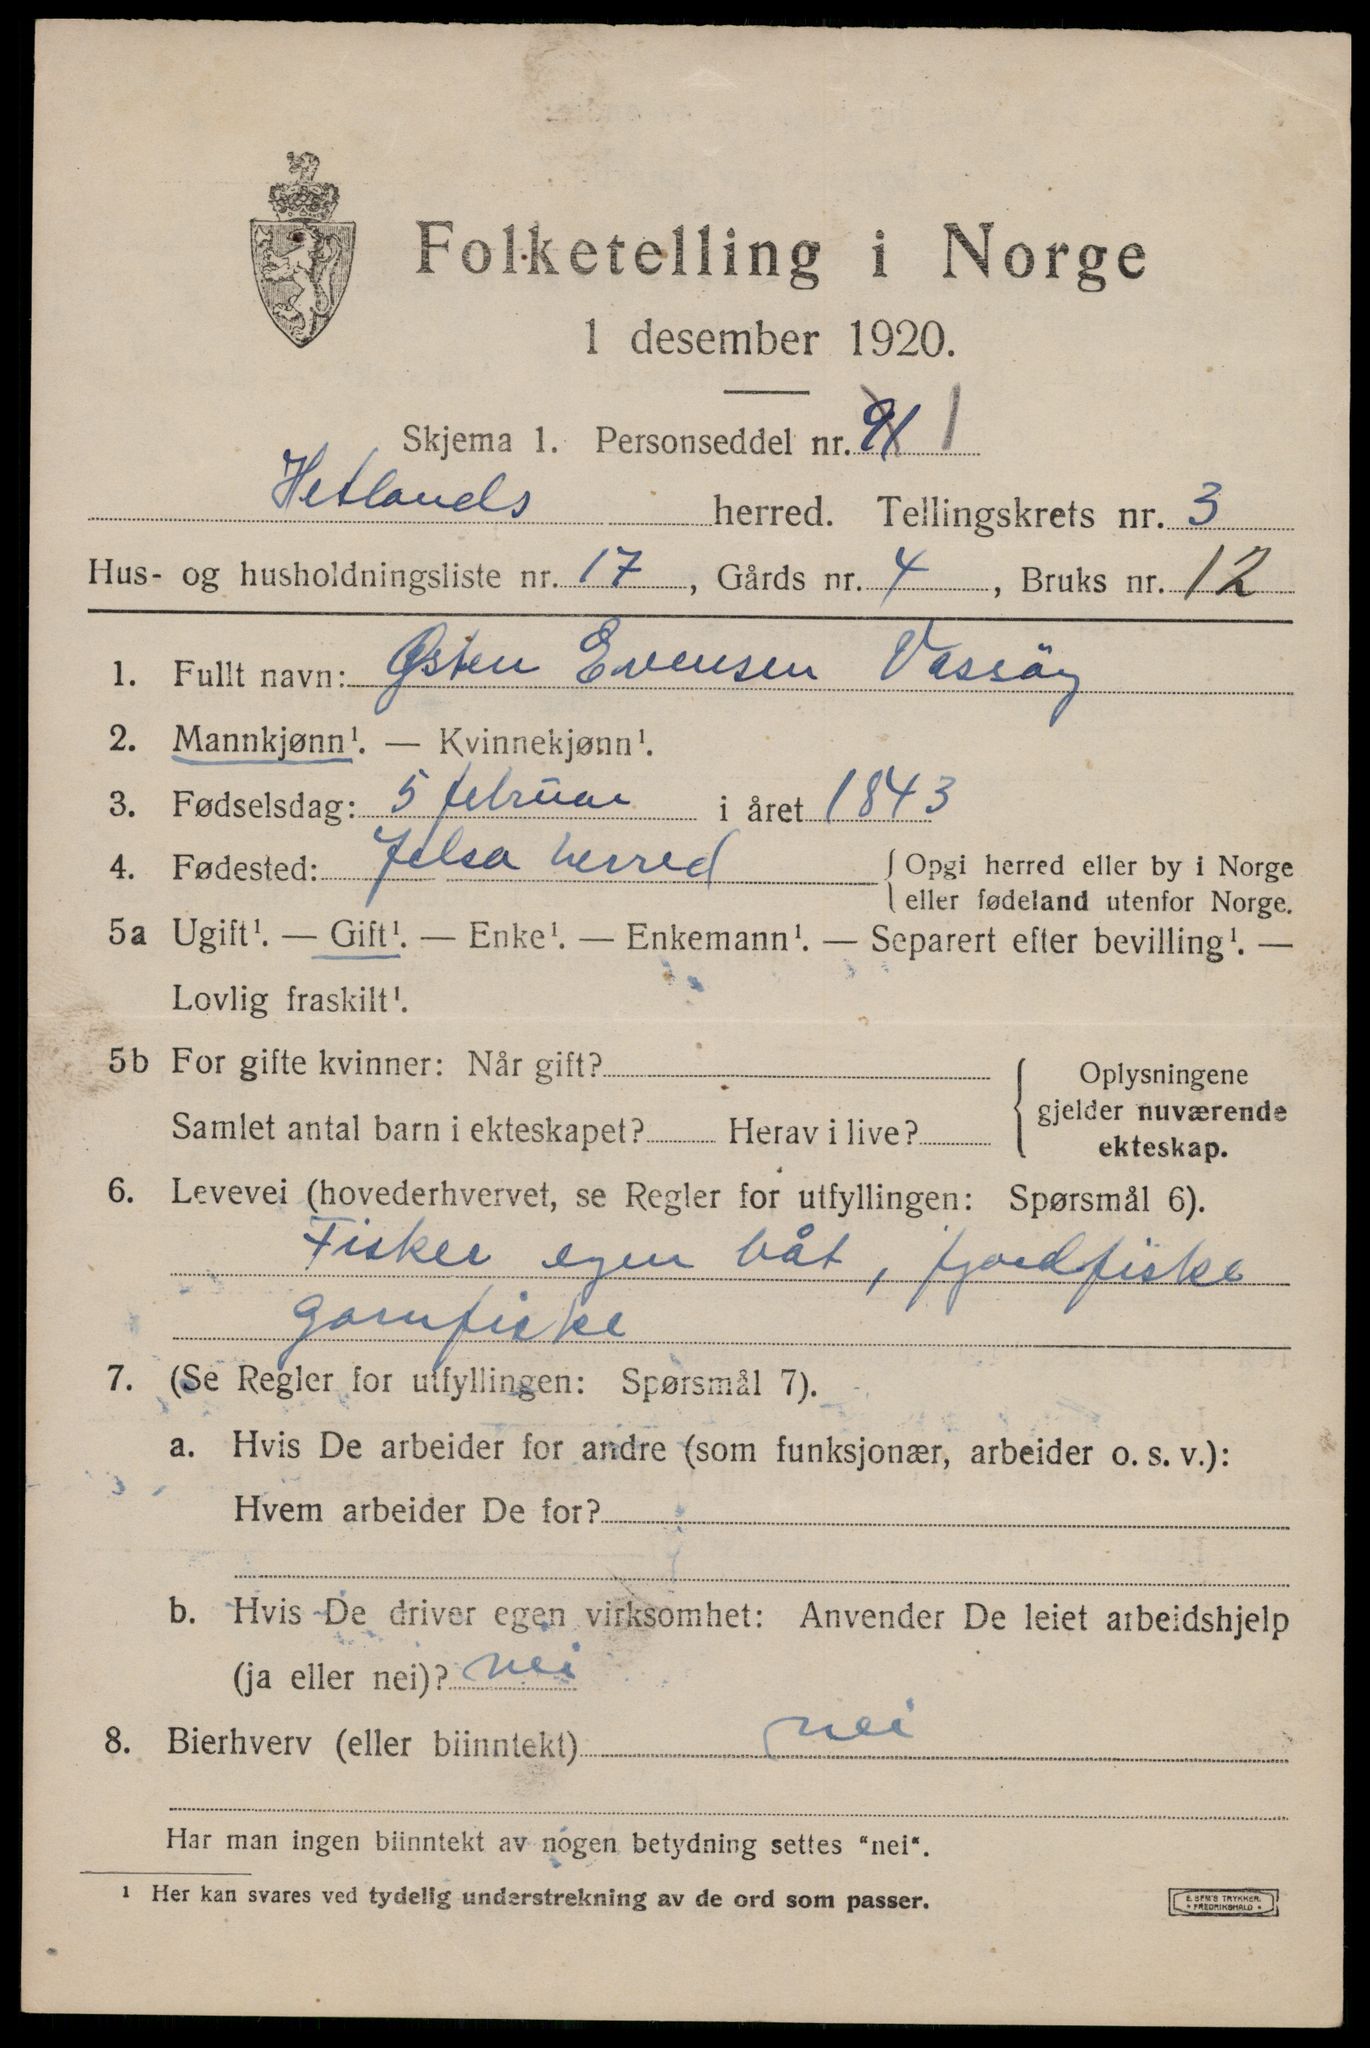 Folketelling i Norge
1 desember 1920.
Skjema 1. Personseddel nr. 1
Hetlands herred. Tellingskrets nr. 3
Hus- og husholdningsliste nr. 17, Gårds nr. 4, Bruks nr. 12
1. Fullt navn: Østen Evensen Vassöy
2. Mannkjønn¹. — Kvinnekjønn¹.
3. Fødselsdag: 5 februar i året 1843
4. Fødested: Jelsa herred { Opgi herred eller by i Norge
eller fødeland utenfor Norge.
5a Ugift¹. — Gift¹. — Enke¹. — Enkemann¹. — Separert efter bevilling¹. —
Lovlig fraskilt¹.
5b For gifte kvinner: Når gift? { Oplysningene
gjelder nuværende
Samlet antal barn i ekteskapet? Herav i live? ekteskap.
6. Levevei (hovederhvervet, se Regler for utfyllingen: Spørsmål 6).
Fisker egen båt, fjordfiske
garnfiske
7. (Se Regler for utfyllingen: Spørsmål 7).
a. Hvis De arbeider for andre (som funksjonær, arbeider o. s. v.):
Hvem arbeider De for?
b. Hvis De driver egen virksomhet: Anvender De leiet arbeidshjelp
(ja eller nei)? nei
8. Bierhverv (eller biinntekt) nei
Har man ingen biinntekt av nogen betydning settes "nei".
¹ Her kan svares ved tydelig understrekning av de ord som passer.
E. SEM'S TRYKKERI
FREDRIKSHALD